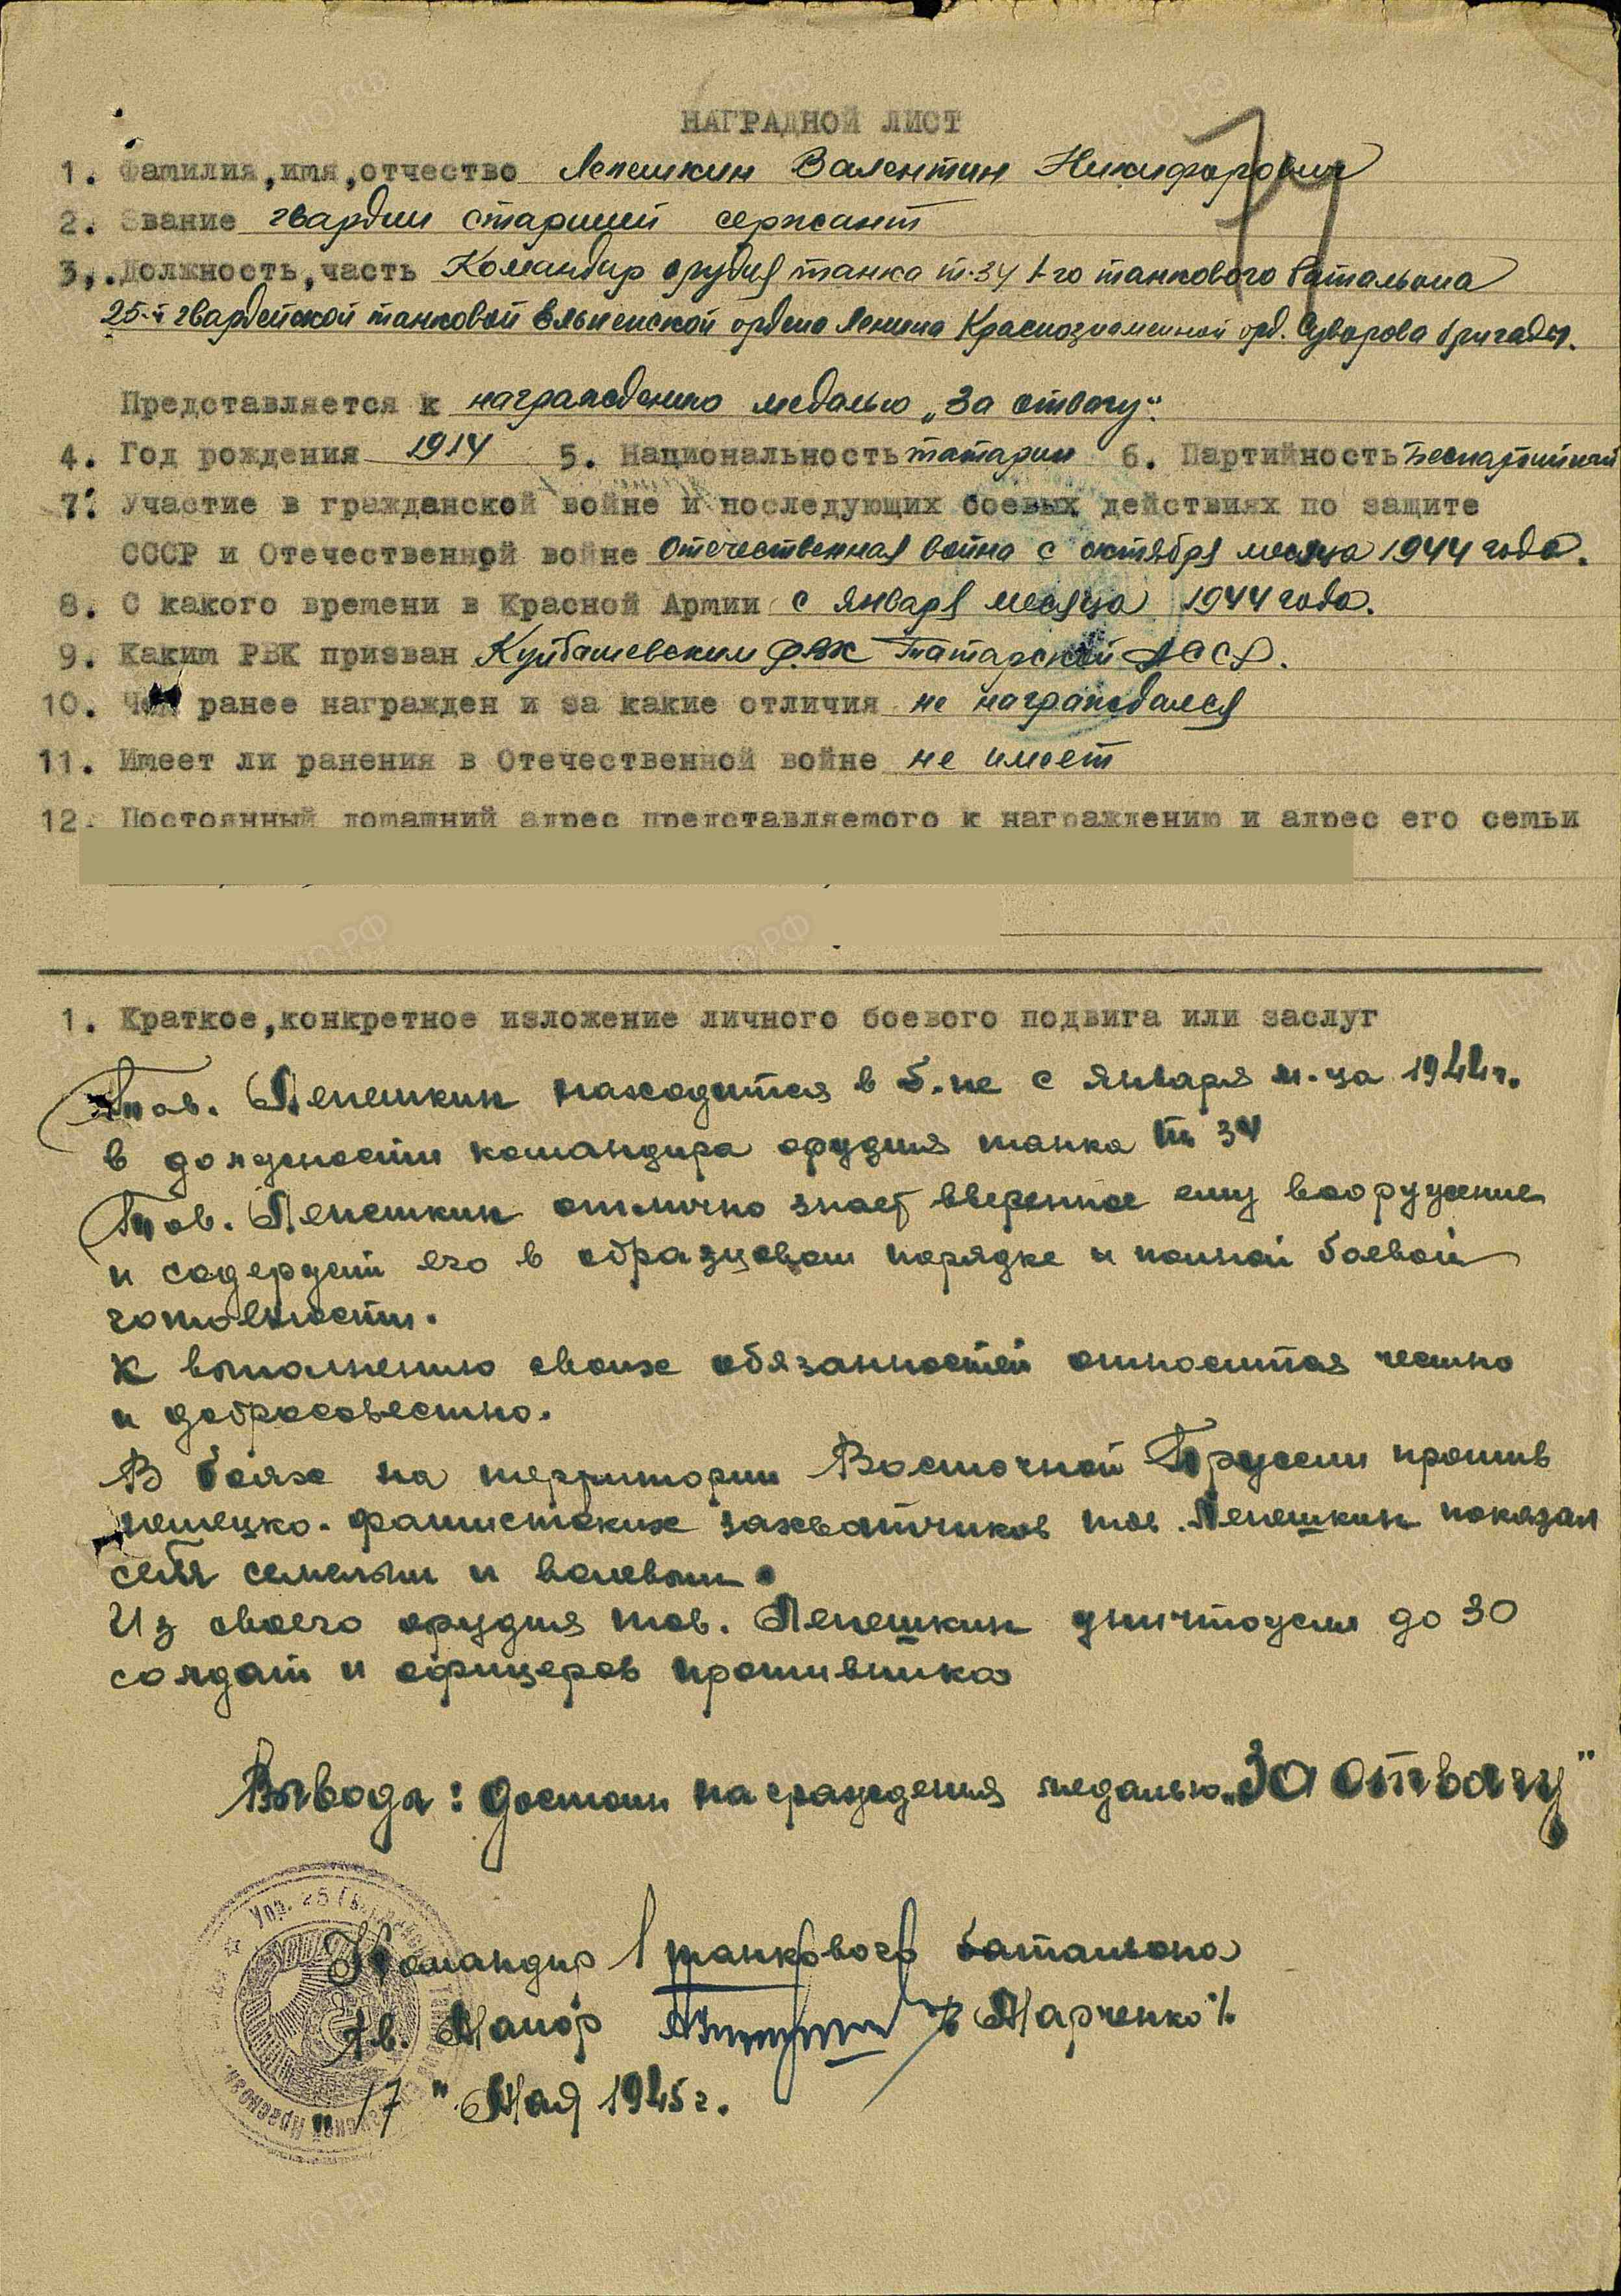 НАГРАДНОЙ ЛИСТ
1. Фамилия, имя, отчество Лепешкин Валентин Никифорович
2. Звание гвардии старший сержант
3. Должность, часть Командир орудия танка т-34 1-го танкового батальона
25-й гвардейской танковой Ельненской ордена Ленина Краснознаменной орд. Суворова бригады.
Представляется к награждению медалью „За отвагу".
4. Год рождения 1914 5. Национальность татарин 6. Партийность Беспартийный
7. Участие в гражданской войне и последующих боевых действиях по защите
СССР и Отечественной войне Отечественная война с октября месяца 1944 года.
8. С какого времени в Красной Армии с января месяца 1944 года.
9. Каким РВК призван Куйбышевским РВК Татарской АССР.
10. Чем ранее награжден и за какие отличия не награждался
11. Имеет ли ранения в Отечественной войне не имеет
12. Постоянный домашний адрес представляемого к награждению и адрес его семьи
1. Краткое, конкретное изложение личного боевого подвига или заслуг
Тов. Лепешкин находится в б-не с января м-ца 1944 г.
в должности командира орудия танка Т 34
Тов. Лепешкин отлично знает вверенное ему вооружение
и содержит его в образцовом порядке и полной боевой
готовности.
К выполнению своих обязанностей относится честно
и добросовестно.
В боях на территории Восточной Пруссии против
немецко-фашистских захватчиков тов. Лепешкин показал
себя смелым и волевым.
Из своего орудия тов. Лепешкин уничтожил до 30
солдат и офицеров противника
Вывода: достоин награждения медалью „За отвагу"
Командир 1 танкового батальона
гв. Майор /Марченко/.
„17" Мая 1945 г.